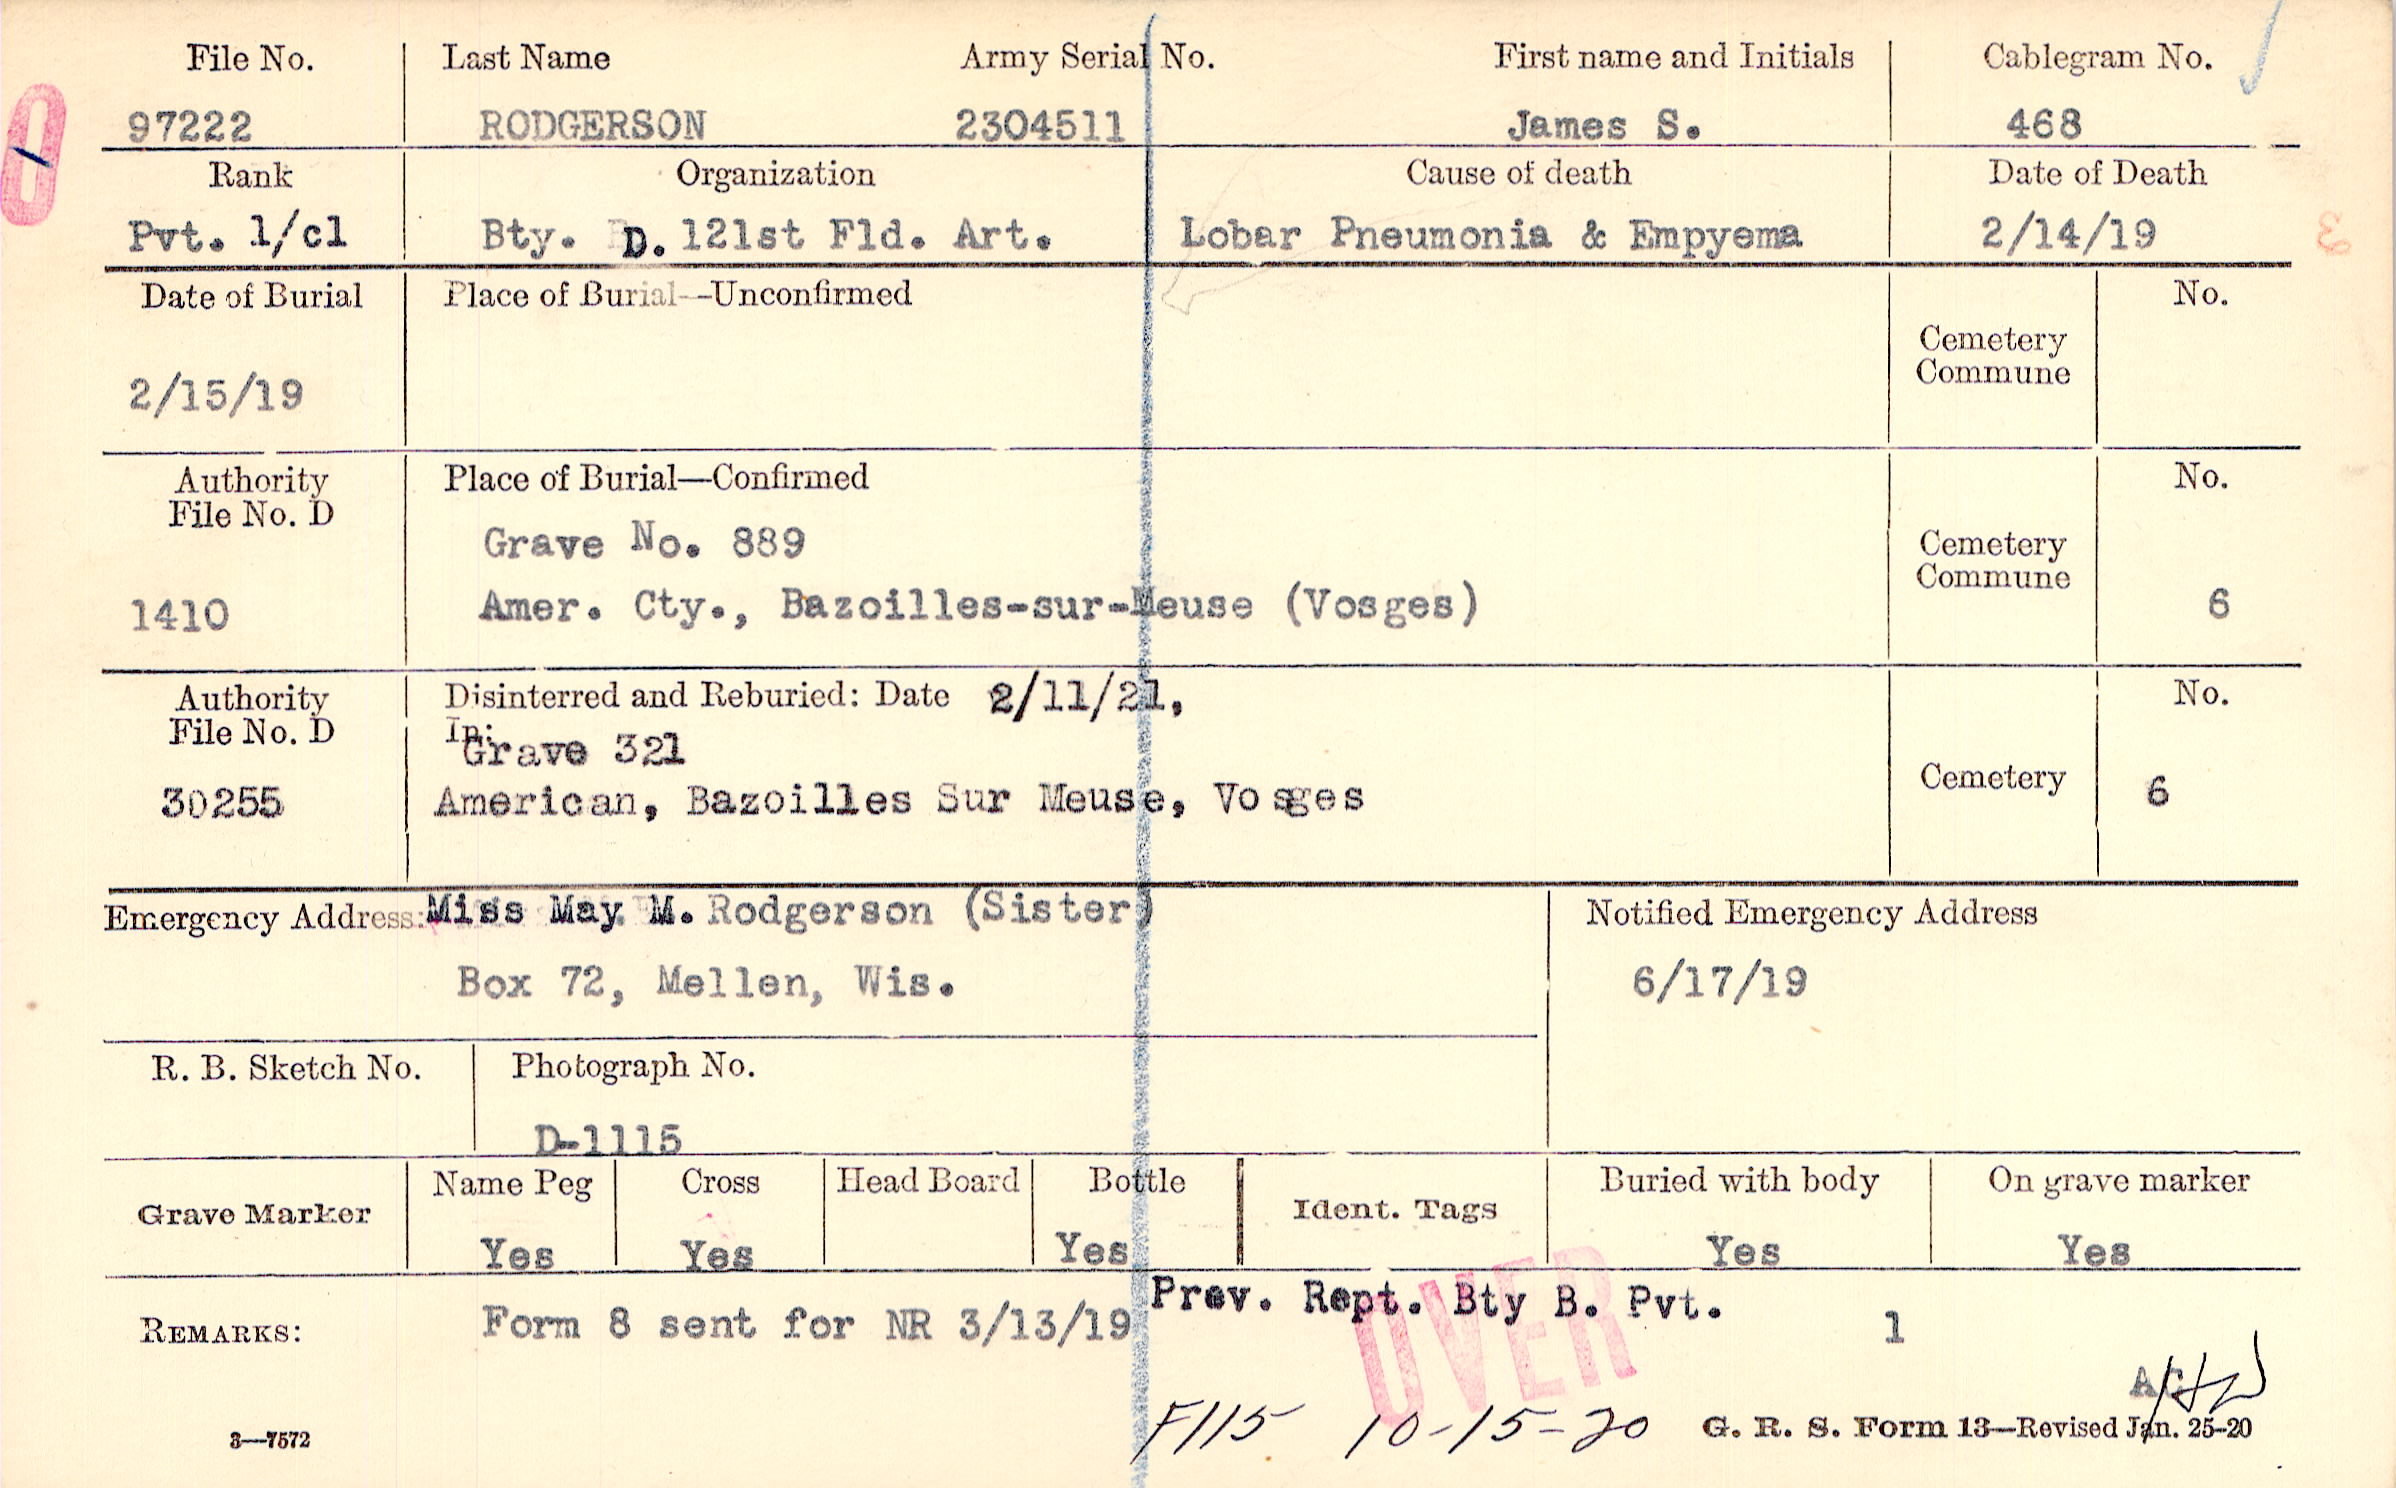 File No. Last Name Army Serial No. First name and Initials Cablegram No.
97222 RODGERSON 2304511 James S. 468
Rank Organization Cause of death Date of Death
Pvt. 1/cl Bty. D. 121st Fld. Art. Lobar Pneumonia & Empyema 2/14/19
3
Date of Burial Place of Burial—Unconfirmed No.
Cemetery
Commune
2/15/19
Authority Place of Burial—Confirmed No.
File No. D
Grave No. 889 Cemetery
Commune
1410 Amer. Cty., Bazoilles-sur-Meuse (Vosges) 6
Authority Disinterred and Reburied: Date 2/11/21, No.
File No. D In:
Grave 321
30255 American, Bazoilles Sur Meuse, Vosges Cemetery 6
Emergency Address: Miss May M. Rodgerson (Sister) Notified Emergency Address
Box 72, Mellen, Wis. 6/17/19
R. B. Sketch No. Photograph No.
D-1115
Grave Marker Name Peg Cross Head Board Bottle Ident. Tags Buried with body On grave marker
Yes Yes Yes Yes Yes
Prev. Rept. Bty B. Pvt.
REMARKS: Form 8 sent for NR 3/13/19 1
OVER
AC
F115 10-15-20 G. R. S. Form 13—Revised Jan. 25-20
3—7572